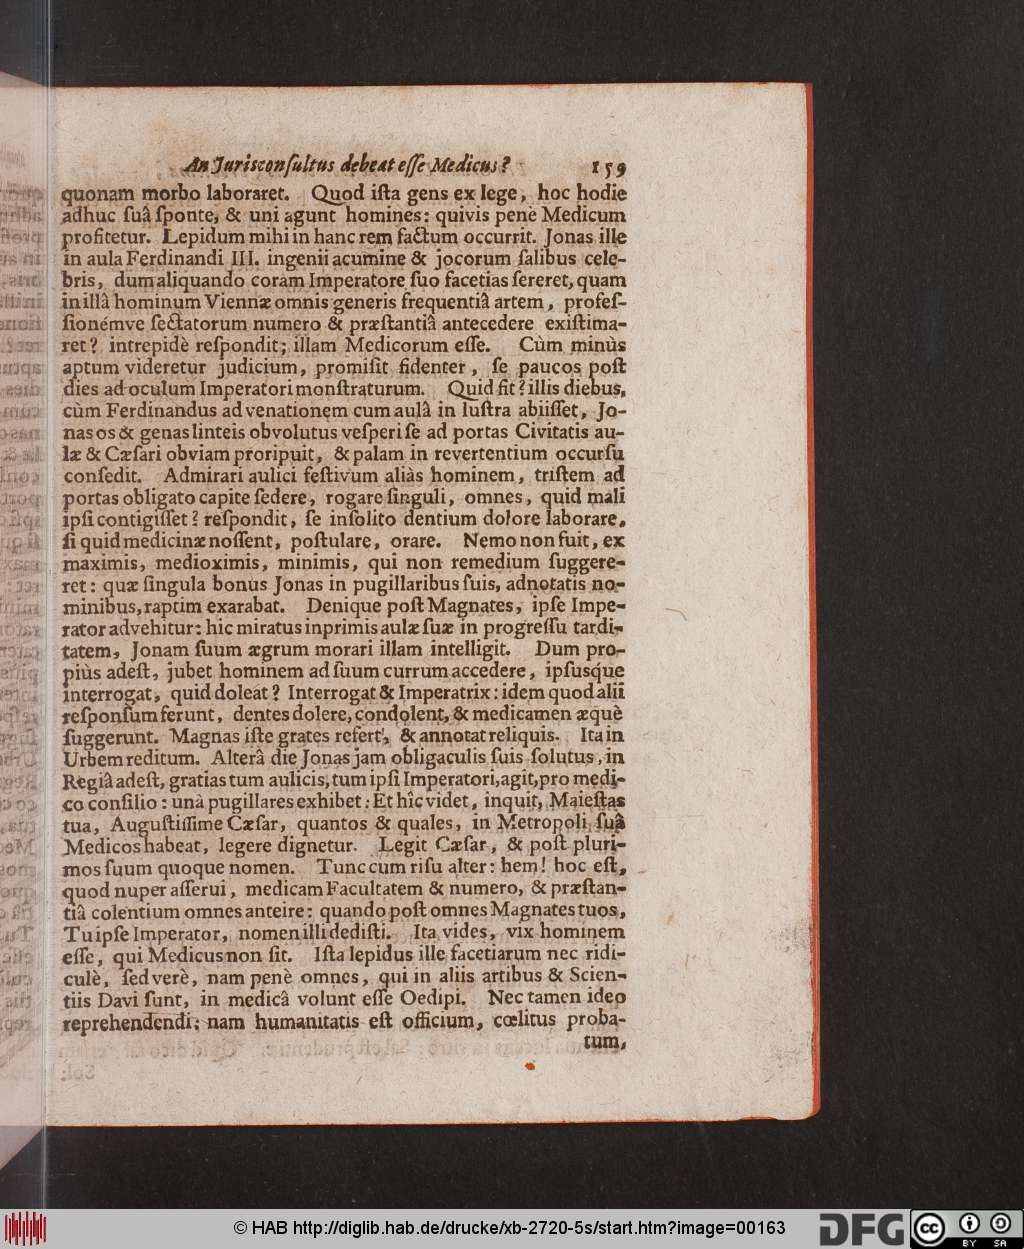 An Jurisconſultus debeat eſſe Medicus? 159
quonam morbo laboraret. Quod iſta gens ex lege, hoc hodie
adhuc ſuâ ſponte, & uni agunt homines: quivis penè Medicum
profitetur. Lepidum mihi in hanc rem factum occurrit. Jonas ille
in aula Ferdinandi III. ingenii acumine & jocorum ſalibus cele-
bris, dum aliquando coram Imperatore ſuo facetias ſereret, quam
in illâ hominum Viennæ omnis generis frequentiâ artem, profeſ-
ſionémve ſectatorum numero & præſtantiâ antecedere exiſtima-
ret? intrepidè reſpondit; illam Medicorum eſſe. Cùm minùs
aptum videretur judicium, promiſit fidenter, ſe paucos poſt
dies ad oculum Imperatori monſtraturum. Quid fit? illis diebus,
cùm Ferdinandus ad venationem cum aulâ in luſtra abiiſſet, Jo-
nas os & genas linteis obvolutus veſperi ſe ad portas Civitatis au-
læ & Cæſari obviam proripuit, & palam in revertentium occurſu
conſedit. Admirari aulici feſtivum aliàs hominem, triſtem ad
portas obligato capite ſedere, rogare ſinguli, omnes, quid mali
ipſi contigiſſet? reſpondit, ſe inſolito dentium dolore laborare,
ſi quid medicinæ noſſent, poſtulare, orare. Nemo non fuit, ex
maximis, medioximis, minimis, qui non remedium ſuggere-
ret: quæ ſingula bonus Jonas in pugillaribus ſuis, adnotatis no-
minibus, raptim exarabat. Denique poſt Magnates, ipſe Impe-
rator advehitur: hic miratus inprimis aulæ ſuæ in progreſſu tardi-
tatem, Jonam ſuum ægrum morari illam intelligit. Dum pro-
piùs adeſt, jubet hominem ad ſuum currum accedere, ipſusq́ue
interrogat, quid doleat? Interrogat & Imperatrix: idem quod alii
reſponſum ferunt, dentes dolere, condolent, & medicamen æquè
ſuggerunt. Magnas iſte grates refert, & annotat reliquis. Ita in
Urbem reditum. Alterâ die Jonas jam obligaculis ſuis ſolutus, in
Regiâ adeſt, gratias tum aulicis, tum ipſi Imperatori, agit, pro medi-
co conſilio: unà pugillares exhibet: Et hîc videt, inquit, Maieſtas
tua, Auguſtiſſime Cæſar, quantos & quales, in Metropoli ſuâ
Medicos habeat, legere dignetur. Legit Cæſar, & poſt pluri-
mos ſuum quoque nomen. Tunc cum riſu alter: hem! hoc eſt,
quod nuper aſſerui, medicam Facultatem & numero, & præſtan-
tiâ colentium omnes anteire: quando poſt omnes Magnates tuos,
Tu ipſe Imperator, nomen illi dediſti. Ita vides, vix hominem
eſſe, qui Medicus non ſit. Iſta lepidus ille facetiarum nec ridi-
culè, ſed verè, nam penè omnes, qui in aliis artibus & Scien-
tiis Davi ſunt, in medicâ volunt eſſe Oedipi. Nec tamen ideo
reprehendendi; nam humanitatis eſt officium, cœlitus proba-
tum,
© HAB http://diglib.hab.de/drucke/xb-2720-5s/start.htm?image=00163
DFG
cc BY SA